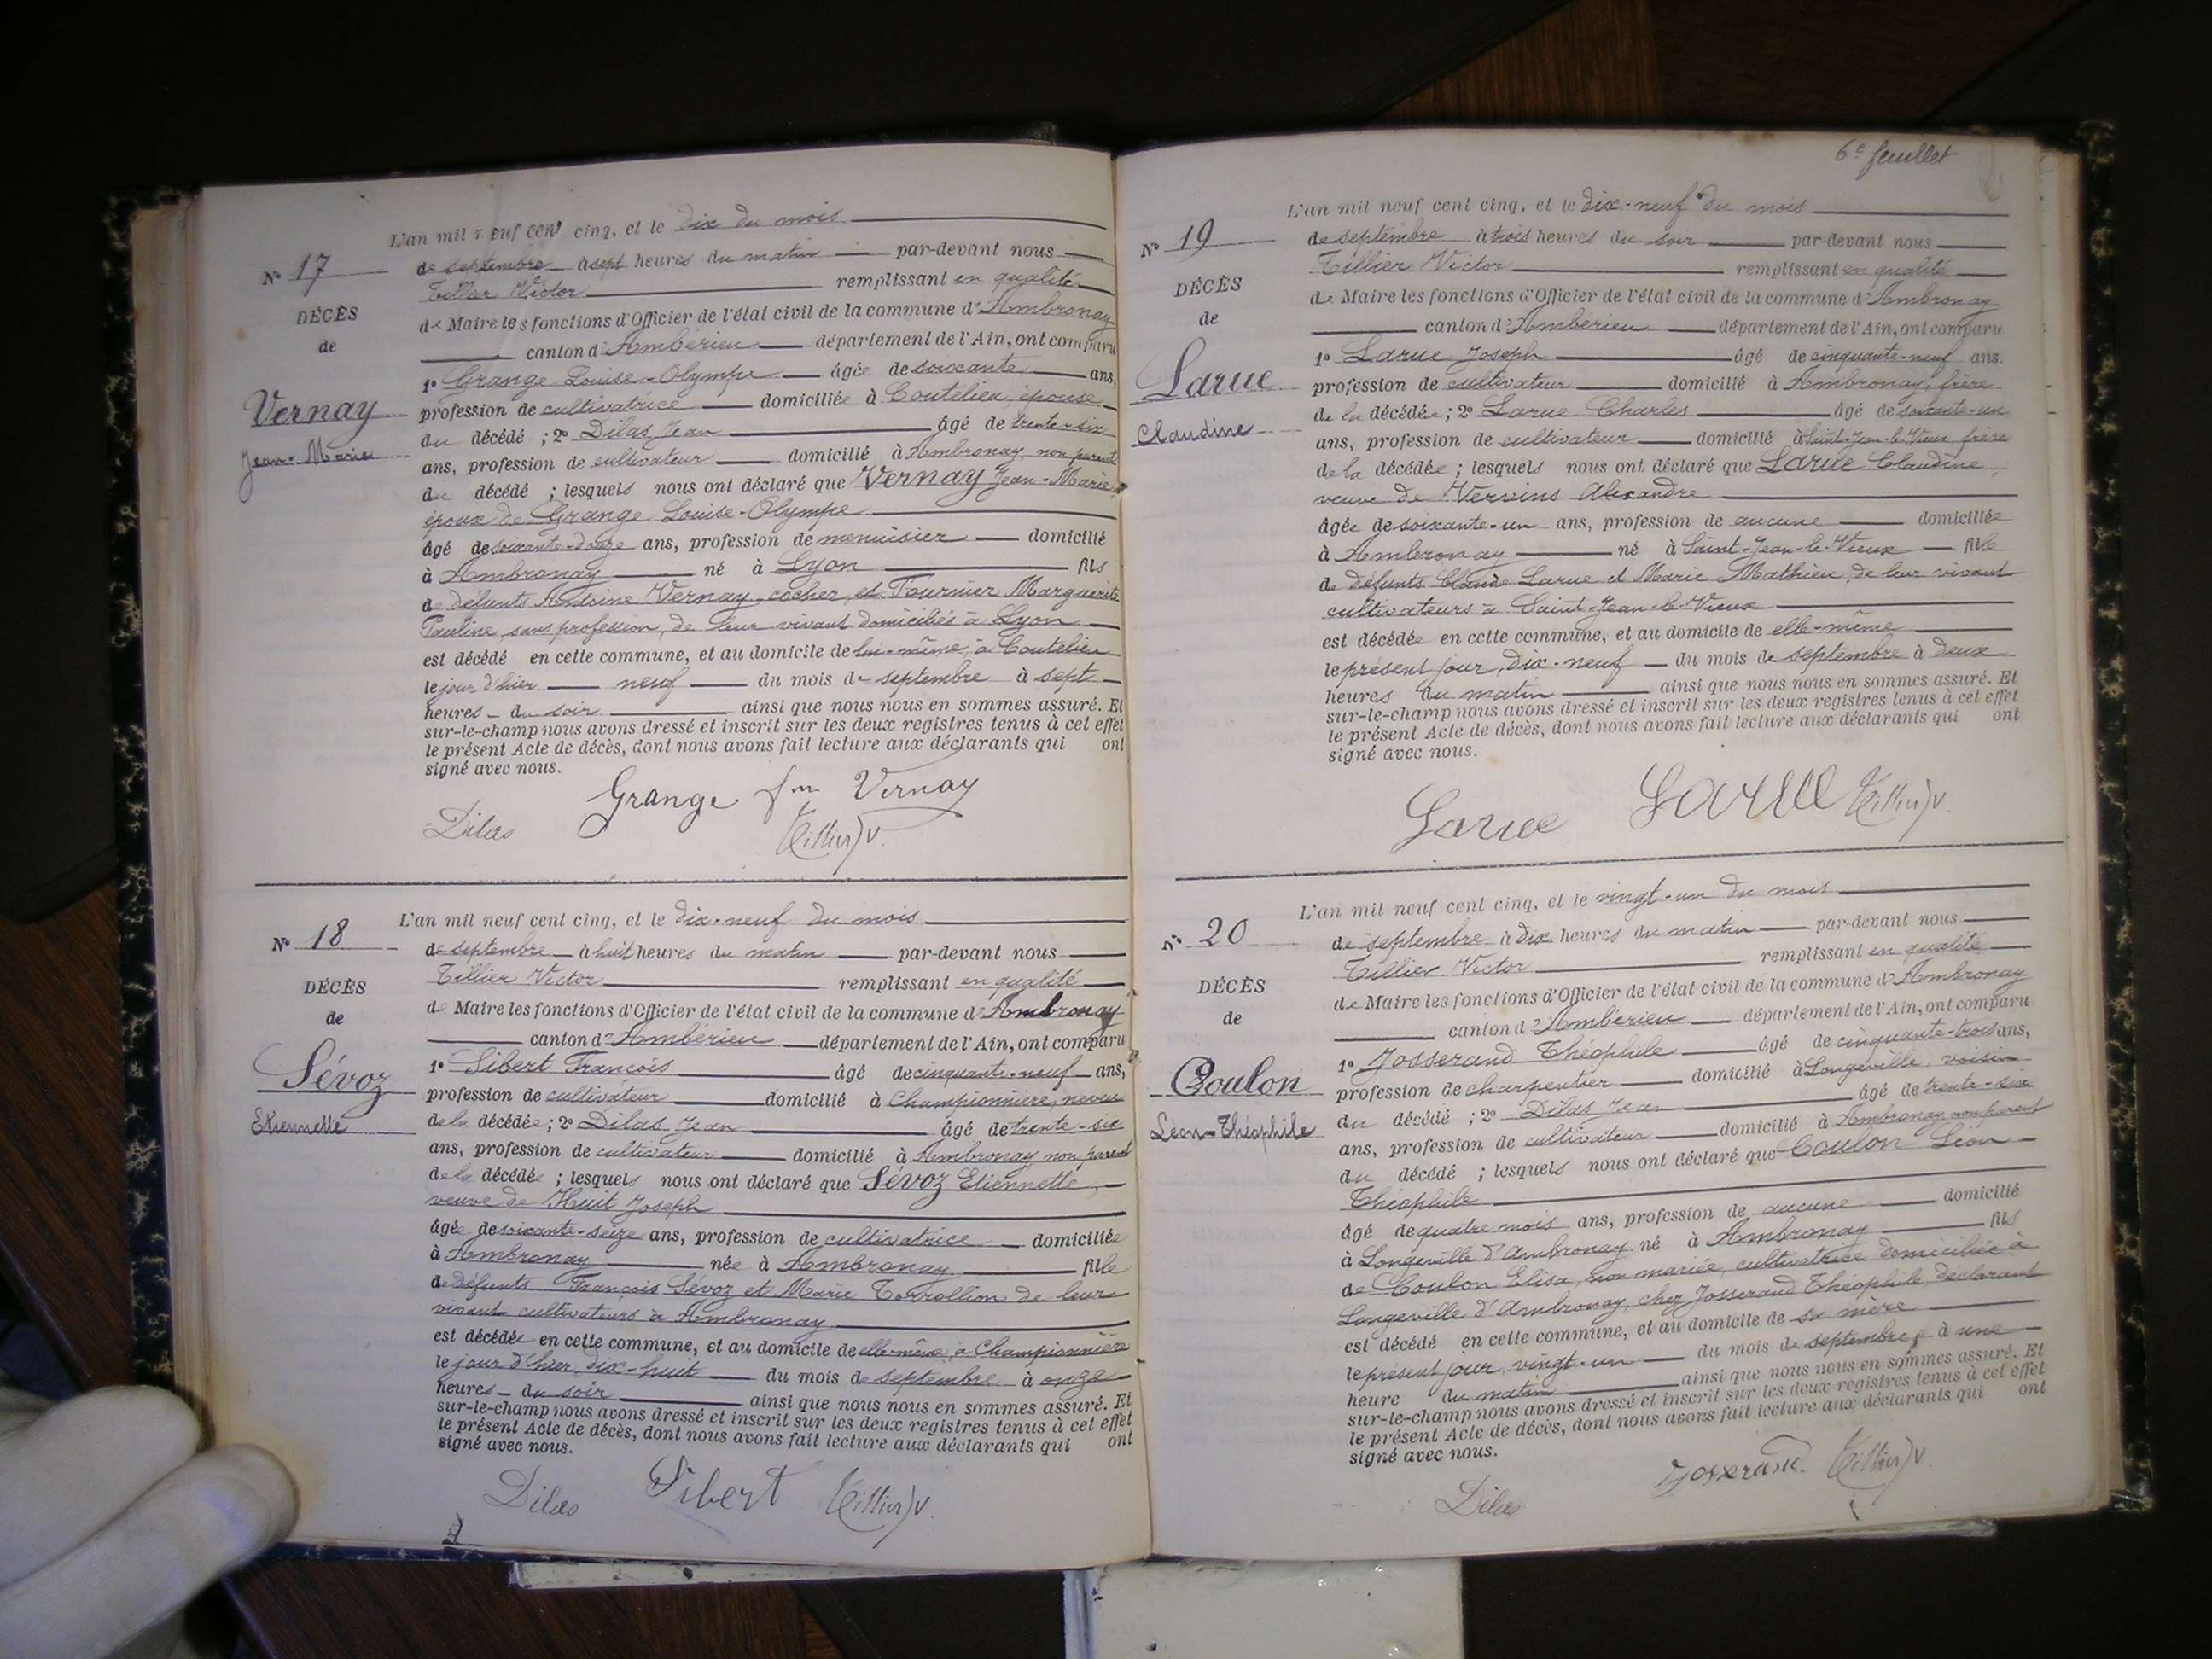 L'an mil neuf cent cinq, et le dix du mois
No 17
de septembre à sept heures du matin par-devant nous
Tillier Victor remplissant en qualité
DÉCÈS
de Maire les fonctions d'Officier de l'état civil de la commune d'Ambronay
de
canton d'Ambérieu département de l'Ain, ont comparu
1o Grange Louise-Olympe âgée de soixante ans,
Vernay
profession de cultivatrice domiciliée à Coutelieu, épouse
du décédé ; 2o Dilas Jean âgé de trente-six
Jean-Marie
ans, profession de cultivateur domicilié à Ambronay, non parent
du décédé ; lesquels nous ont déclaré que Vernay Jean-Marie
époux de Grange Louise-Olympe
âgé de soixante-douze ans, profession de menuisier domicilié
à Ambronay né à Lyon fils
de défunts Antoine Vernay, cocher, et Fournier Marguerite
Pauline, sans profession, de leur vivant domiciliés à Lyon
est décédé en cette commune, et au domicile de lui-même, à Coutelieu
le jour d'hier neuf du mois de septembre à sept
heures du soir ainsi que nous nous en sommes assuré. Et
sur-le-champ nous avons dressé et inscrit sur les deux registres tenus à cet effet
le présent Acte de décès, dont nous avons fait lecture aux déclarants qui ont
signé avec nous.
Grange fm Vernay
Dilas Tillier V.
L'an mil neuf cent cinq, et le dix-neuf du mois
No 18
de septembre à huit heures du matin par-devant nous
Tillier Victor remplissant en qualité
DÉCÈS
de Maire les fonctions d'Officier de l'état civil de la commune d'Ambronay
de
canton d'Ambérieu département de l'Ain, ont comparu
1o Sibert François âgé de cinquante-neuf ans,
Sévoz
profession de cultivateur domicilié à Championnière, neveu
Etiennette
de la décédée ; 2o Dilas Jean âgé de trente-six
ans, profession de cultivateur domicilié à Ambronay non parent
de la décédée ; lesquels nous ont déclaré que Sévoz Etiennette,
veuve de Huit Joseph
âgée de soixante-seize ans, profession de cultivatrice domiciliée
à Ambronay née à Ambronay fille
de défunts François Sévoz et Marie de leur
vivant cultivateurs à Ambronay
est décédée en cette commune, et au domicile de elle-même, à Championnière
le jour d'hier, dix-huit du mois de septembre à onze
heures du soir ainsi que nous nous en sommes assuré. Et
sur-le-champ nous avons dressé et inscrit sur les deux registres tenus à cet effet
le présent Acte de décès, dont nous avons fait lecture aux déclarants qui ont
signé avec nous.
Dilas Sibert Tillier V.
6e feuillet
L'an mil neuf cent cinq, et le dix-neuf du mois
No 19
de septembre à trois heures du soir par-devant nous
Tillier Victor remplissant en qualité
DÉCÈS
de Maire les fonctions d'Officier de l'état civil de la commune d'Ambronay
de
canton d'Ambérieu département de l'Ain, ont comparu
1o Larue Joseph âgé de cinquante-neuf ans.
Larue
profession de cultivateur domicilié à Ambronay, frère
de la décédée ; 2o Larue Charles âgé de soixante-un
Claudine
ans, profession de cultivateur domicilié à Saint-Jean-le-Vieux frère
de la décédée ; lesquels nous ont déclaré que Larue Claudine,
veuve de Alexandre
âgée de soixante-un ans, profession de aucune domiciliée
à Ambronay né à Saint-Jean-le-Vieux fille
de défunts Claude Larue et Marie Mathieu, de leur vivant
cultivateurs à Saint-Jean-le-Vieux
est décédée en cette commune, et au domicile de elle-même
le présent jour, dix-neuf du mois de septembre à deux
heures du matin ainsi que nous nous en sommes assuré. Et
sur-le-champ nous avons dressé et inscrit sur les deux registres tenus à cet effet
le présent Acte de décès, dont nous avons fait lecture aux déclarants qui ont
signé avec nous.
Larue Larue Tillier V.
L'an mil neuf cent cinq, et le vingt-un du mois
No 20
de septembre à dix heures du matin par-devant nous
Tillier Victor remplissant en qualité
DÉCÈS
de Maire les fonctions d'Officier de l'état civil de la commune d'Ambronay
de
canton d'Ambérieu département de l'Ain, ont comparu
1o Josserand Théophile âgé de cinquante-trois ans,
Coulon
profession de charpentier domicilié à Longeville, voisin
Léon-Théophile
du décédé ; 2o Dilas Jean âgé de trente-six
ans, profession de cultivateur domicilié à Ambronay non parent
du décédé ; lesquels nous ont déclaré que Coulon Léon
Théophile
âgé de quatre mois ans, profession de aucune domicilié
à Longeville d'Ambronay né à Ambronay fils
de Coulon Elisa, non mariée, cultivatrice domiciliée à
Longeville d'Ambronay, chez Josserand Théophile, déclarant
est décédé en cette commune, et au domicile de sa mère
le présent jour, vingt-un du mois de septembre, à une
heure du matin ainsi que nous nous en sommes assuré. Et
sur-le-champ nous avons dressé et inscrit sur les deux registres tenus à cet effet
le présent Acte de décès, dont nous avons fait lecture aux déclarants qui ont
signé avec nous.
Dilas Josserand Tillier V.